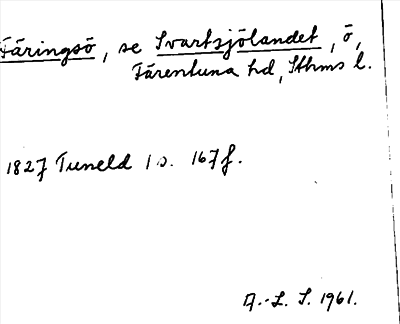 Färingsö, se Svartsjölandet, ö,
Färentuna hd, Sthms l.
1827 Tuneld I s. 167 f.
A.-L. S. 1961.